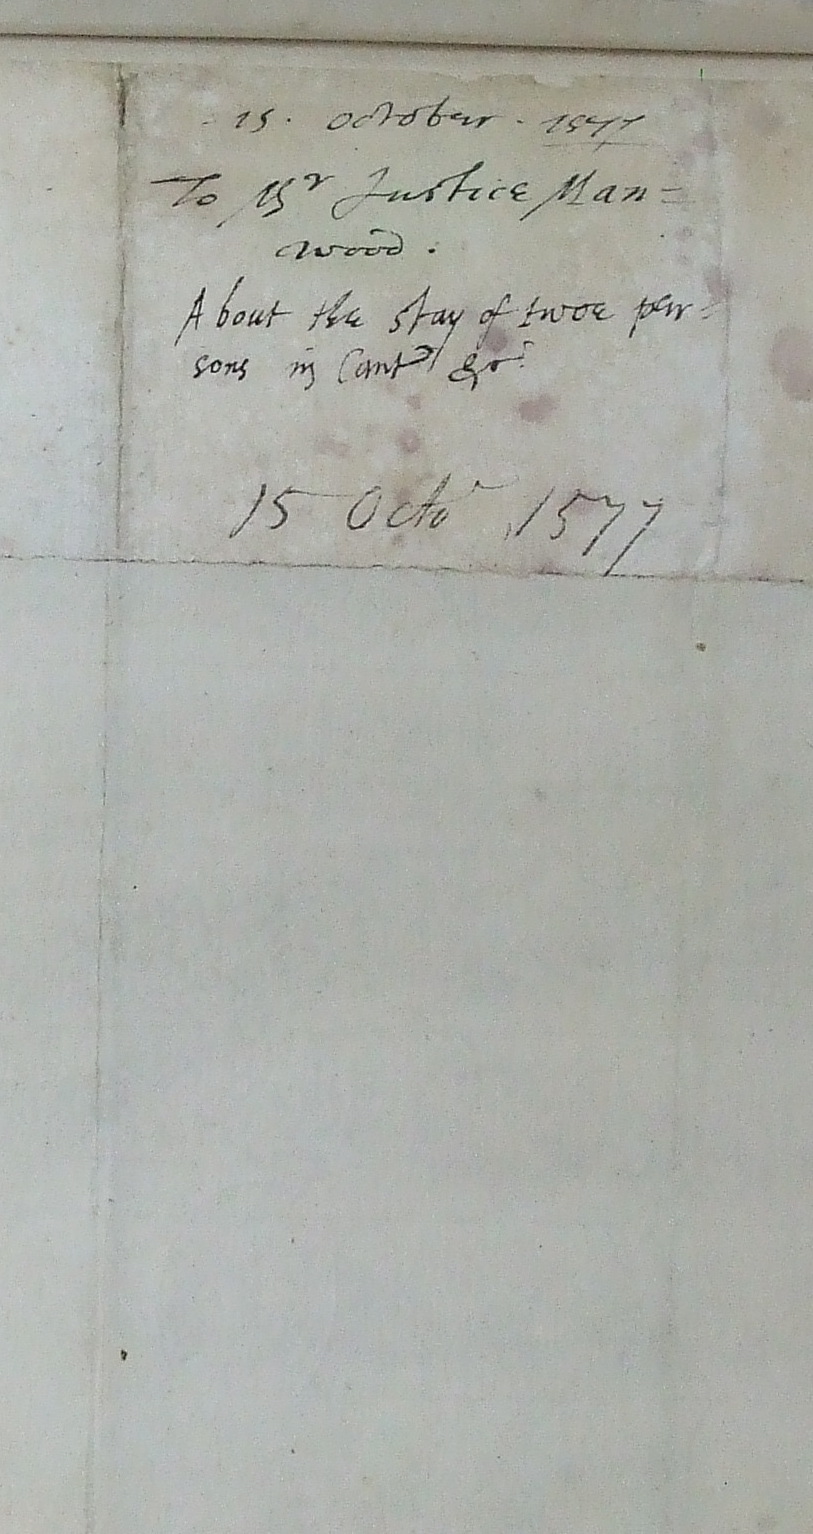 15. October. 1577
To Mr Justice Man=
wood.
About the stay of twoe per=
sons in Cant &c
15 Octor 1577